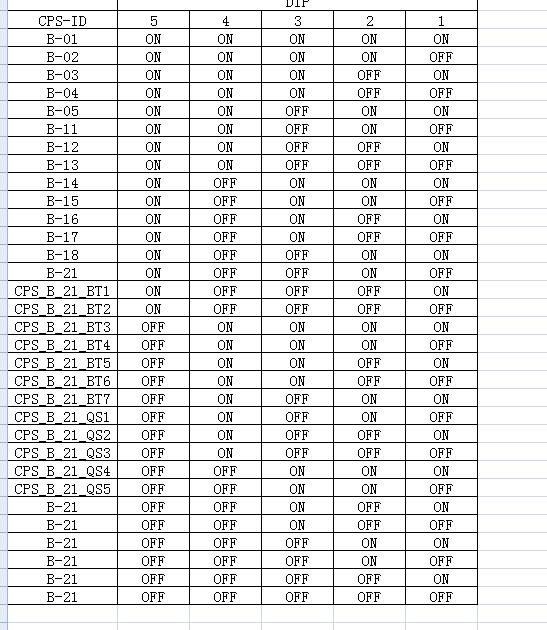 DIP
CPS-ID 5 4 3 2 1
B-01 ON ON ON ON ON
B-02 ON ON ON ON OFF
B-03 ON ON ON OFF ON
B-04 ON ON ON OFF OFF
B-05 ON ON OFF ON ON
B-11 ON ON OFF ON OFF
B-12 ON ON OFF OFF ON
B-13 ON ON OFF OFF OFF
B-14 ON OFF ON ON ON
B-15 ON OFF ON ON OFF
B-16 ON OFF ON OFF ON
B-17 ON OFF ON OFF OFF
B-18 ON OFF OFF ON ON
B-21 ON OFF OFF ON OFF
CPS_B_21_BT1 ON OFF OFF OFF ON
CPS_B_21_BT2 ON OFF OFF OFF OFF
CPS_B_21_BT3 OFF ON ON ON ON
CPS_B_21_BT4 OFF ON ON ON OFF
CPS_B_21_BT5 OFF ON ON OFF ON
CPS_B_21_BT6 OFF ON ON OFF OFF
CPS_B_21_BT7 OFF ON OFF ON ON
CPS_B_21_QS1 OFF ON OFF ON OFF
CPS_B_21_QS2 OFF ON OFF OFF ON
CPS_B_21_QS3 OFF ON OFF OFF OFF
CPS_B_21_QS4 OFF OFF ON ON ON
CPS_B_21_QS5 OFF OFF ON ON OFF
B-21 OFF OFF ON OFF ON
B-21 OFF OFF ON OFF OFF
B-21 OFF OFF OFF ON ON
B-21 OFF OFF OFF ON OFF
B-21 OFF OFF OFF OFF ON
B-21 OFF OFF OFF OFF OFF